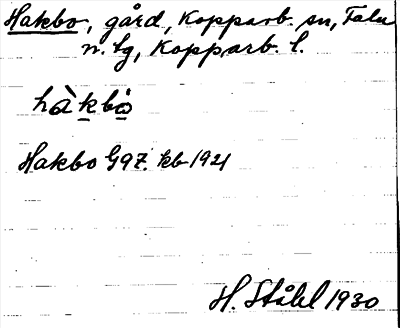 Hakbo, gård, Kopparb. sn, Falu
n. tg, Kopparb. l.
hàkbo
Hakbo G 97. kb 1921
H. Ståhl 1930